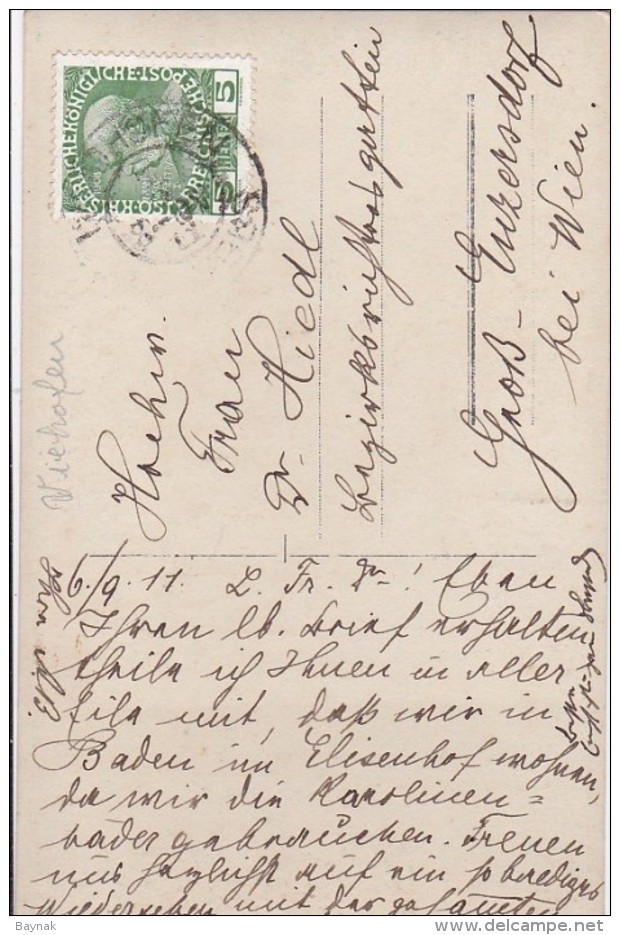 KAISERLICHE KÖNIGLICHE ÖSTERREICHISCHE POST
5 HELLER 5
Hochw.
Frau
Dr Hiedl
Bezirksrichtersgattin
Groß-Enzersdorf
bei Wien.
Viehofen
6./9. 11. L. Fr. Dr! Eben
Ihren lb. Brief erhalten
theile ich Ihnen in aller
Eile mit, daß wir in
Baden im Elisenhof wohnen,
da wir die Karolinen=
bäder gebrauchen. Freuen
uns herzlichst auf ein so baldiges
Wiedersehen mit der gesamten
Ihre
Baynak
www.delcampe.net